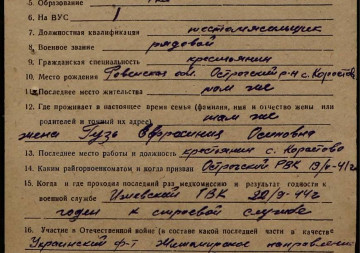 5. Образование
6. На ВУС 1
7. Должностная квалификация
8. Военное звание рядовой
9. Гражданская специальность крестьянин
10. Место рождения Ровенская обл. Острогский р-н с.
11. Последнее место жительства там же
12. Где проживает в настоящее время семья (фамилия, имя и отчество жены или
родителей и точный их адрес) там же
жена Гузь Осиповна
13. Последнее место работы и должность крестьянин с.
14. Каким райгорвоенкоматом и когда призван Острогский РВК
15. Когда и где проходил последний раз медкомиссию и результат годности к
военной службе РВК
годен к строевой службе
16. Участие в Отечественной войне (в составе какой последней части и в качестве
Украинский ф-т Житомирское направление